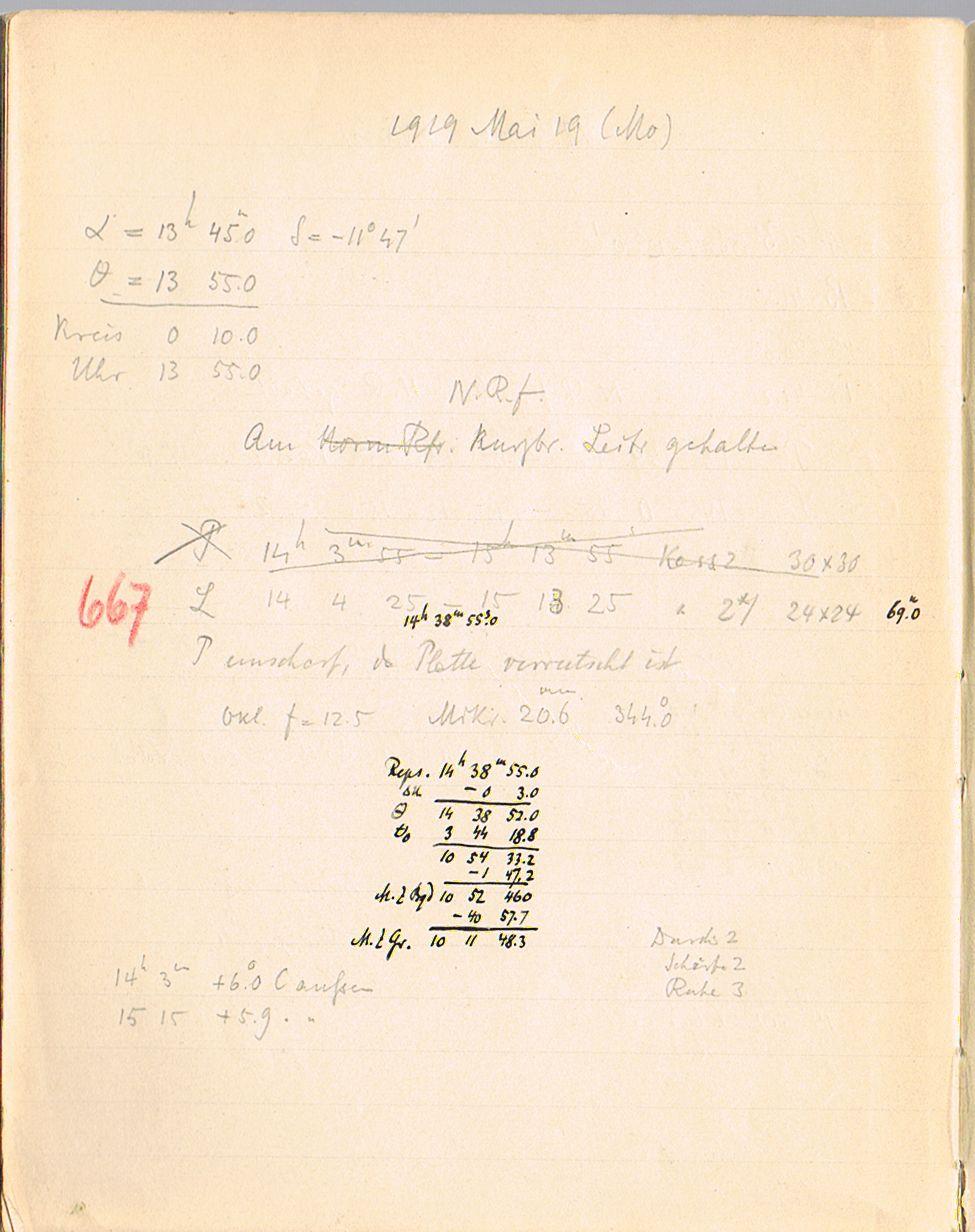 1919 Mai 19 (Mo)
α = 13h 45m.0 δ = -11° 47'
θ = 13 55.0
Kreis 0 10.0
Uhr 13 55.0
N.R.f.
Am Kurzbr. Leitr gehalten
P 14h 3m 55 – 15h 13m 55s Kass 2 30×30
667 L 14 4 25 – 15 13 25 " 2*) 24×24 69m.0
14h 38m 55s.0
P unscharf, da Platte verrutscht ist
Okl. f = 12.5 Mikr. 20.6mm 344°.0
Reps. 14h 38m 55.0
Δu – 0 3.0
θ 14 38 52.0
t₀ 3 44 18.8
10 54 33.2
– 1 47.2
M.Z. Bgd 10 52 46.0
– 40 57.7
M.Z. Gr. 10 11 48.3
Durchs 2
Schärfe 2
Ruhe 3
14h 3m +6°.0 C außen
15 15 +5.9 " "